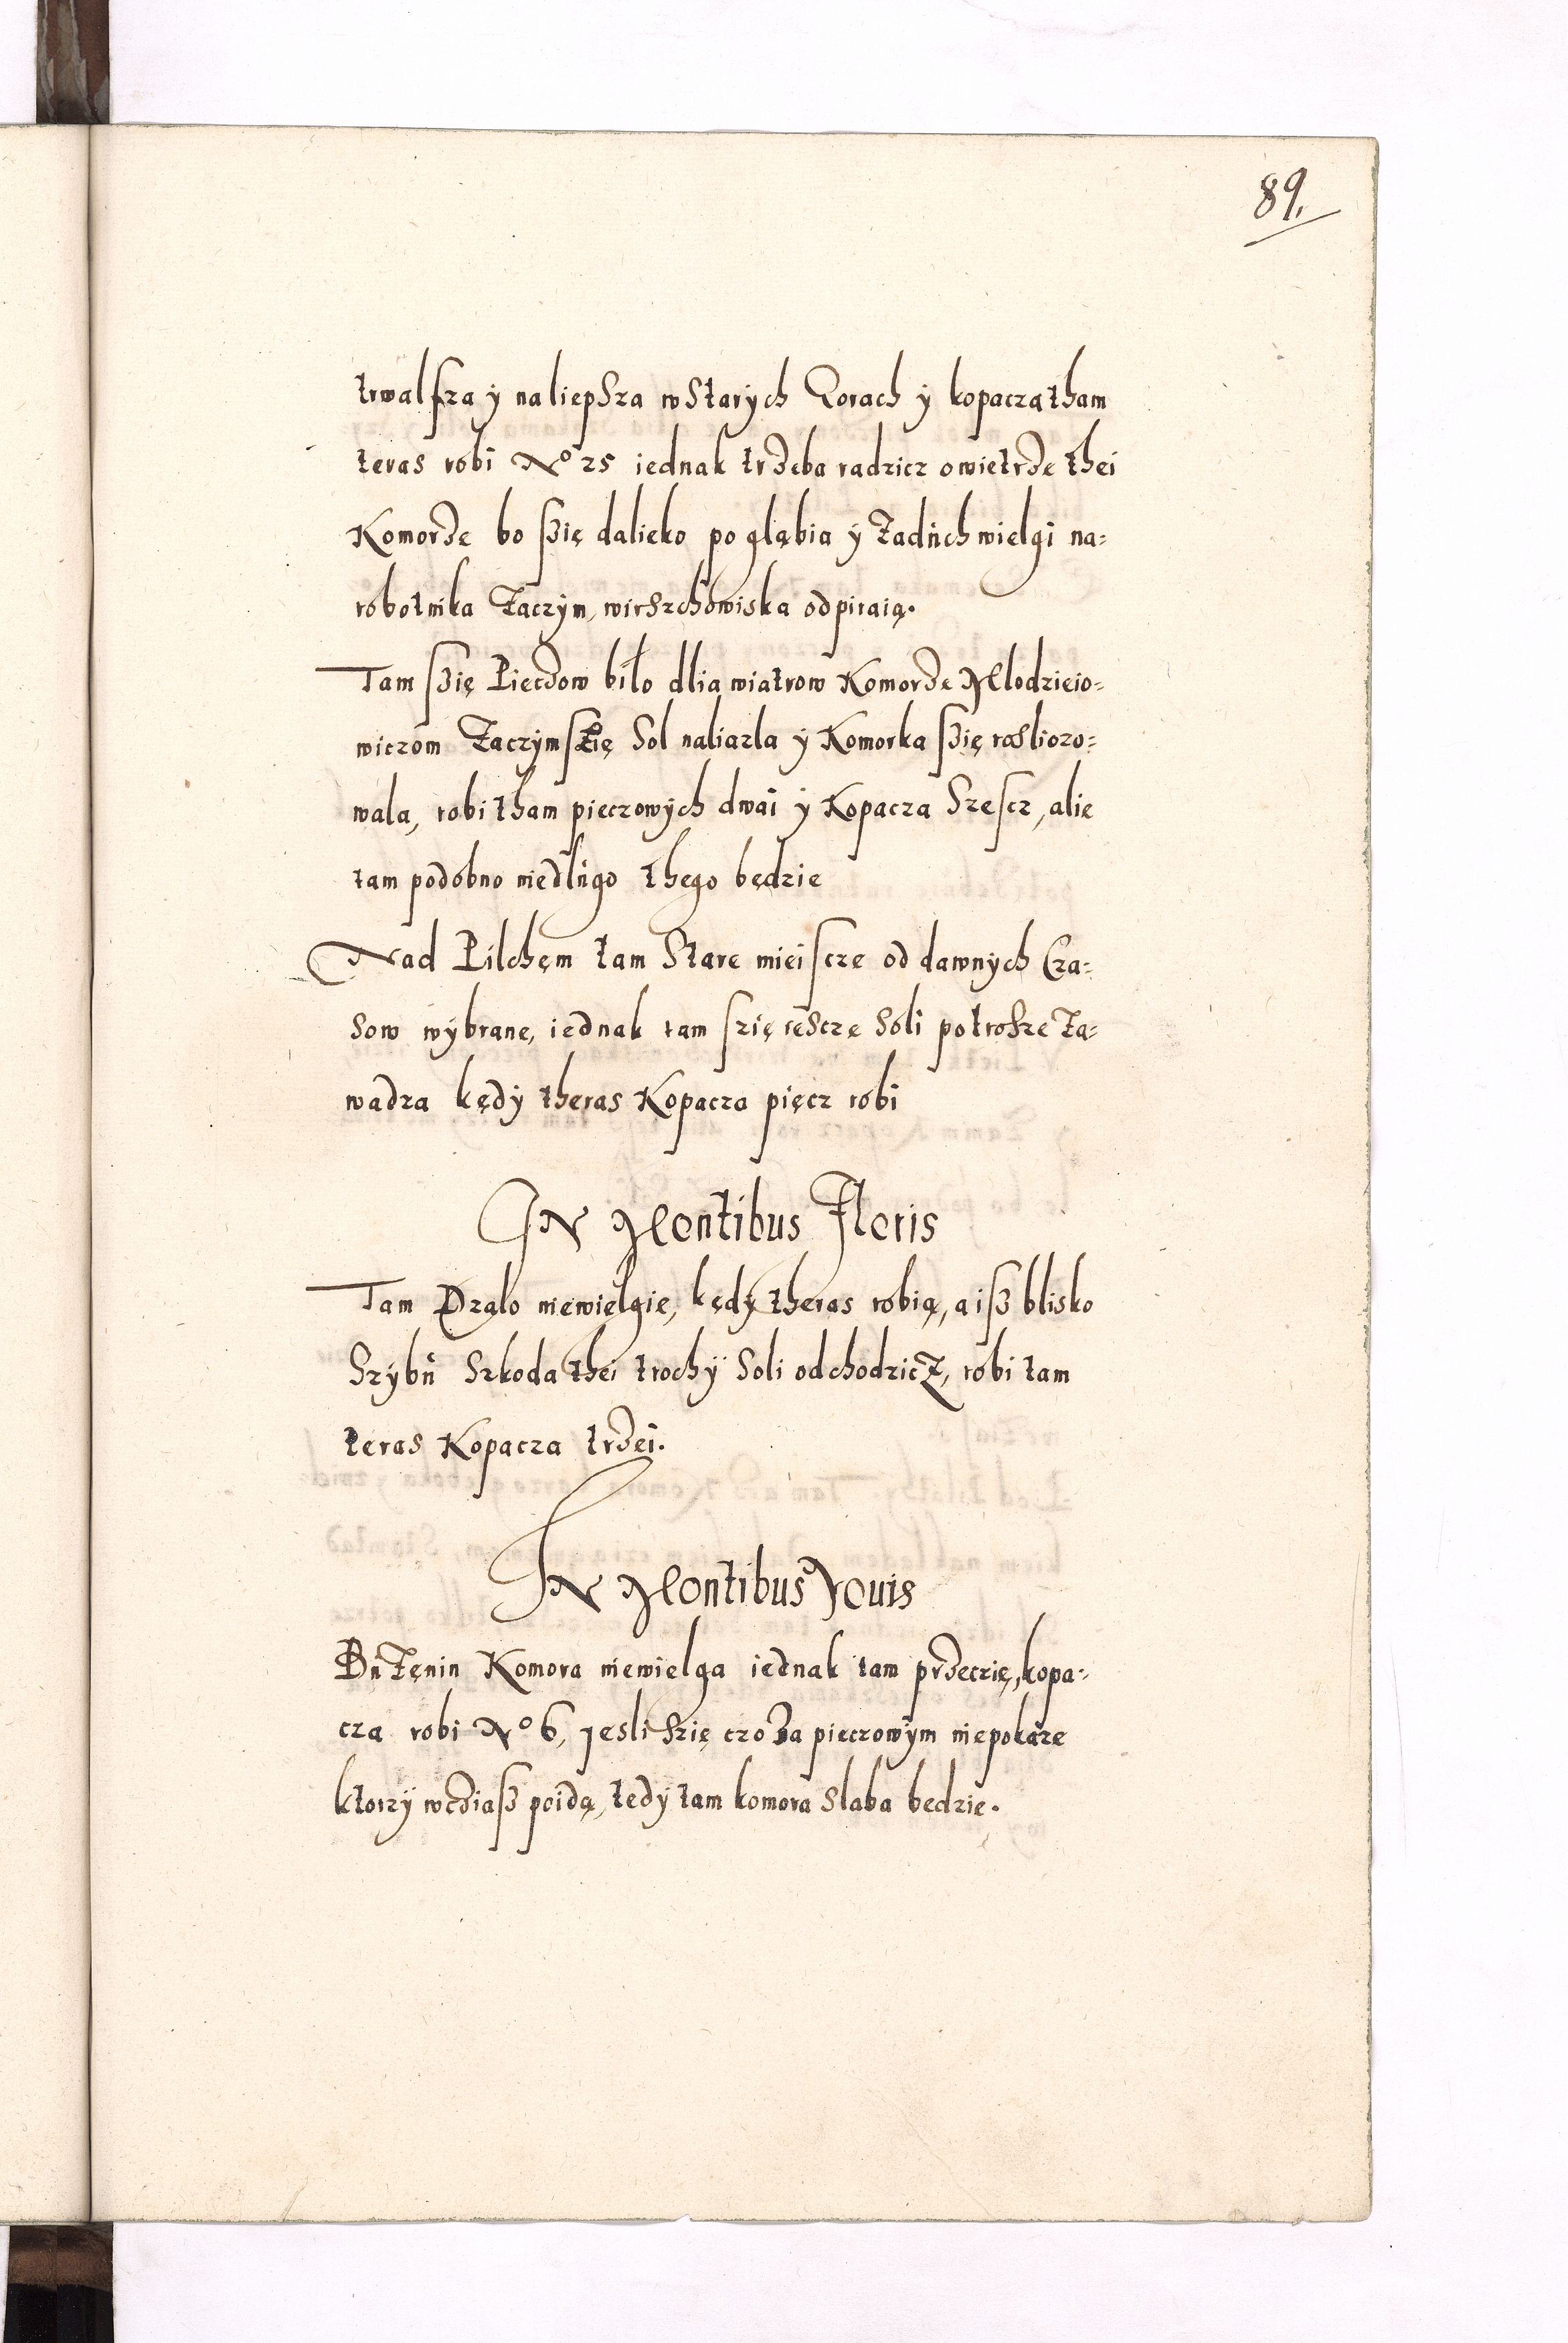 89.
trwalsza ÿ naliepsza w starÿch Gorach ÿ kopacza tham
teras robi No 25 iednak trzeba radzicz o wietrze thei
Komorze bo szię dalieko pogłąbia ÿ zaduch wielgi na=
robotnika zaczym, wirszchowiska odpiraią.
Tam szię Pieczow biło dlia wiatrow Komorze Mlodzieio=
wiczom zaczÿm szię Sol naliazla ÿ Komorka szię roslozo=
wala, robi tham pieczowÿch dwai ÿ Kopacza Szescz, alie
tam podobno niedlugo thego będzie
Nad Pilchęm tam Stare mieiscze od dawnÿch Cza=
sow wÿbrane, iednak tam szię iescze Soli potrosze za=
wadza kędÿ theras Kopacza pięcz robi
In Montibus Floris
Tam Dzalo niewielgie, kędÿ theras robią, a isz blisko
Szÿbu Szkoda thei trochÿ Soli odchodzicz, robi tam
teras Kopacza trzei.
In Montibus Iouis
Buzenin Komora niewielga iednak tam przeczię, kopa=
cza robi No 6, jesli szię czo za pieczowÿm niepokaze
ktorzÿ wcziasz poidą, tedÿ tam komora slaba bedzie.